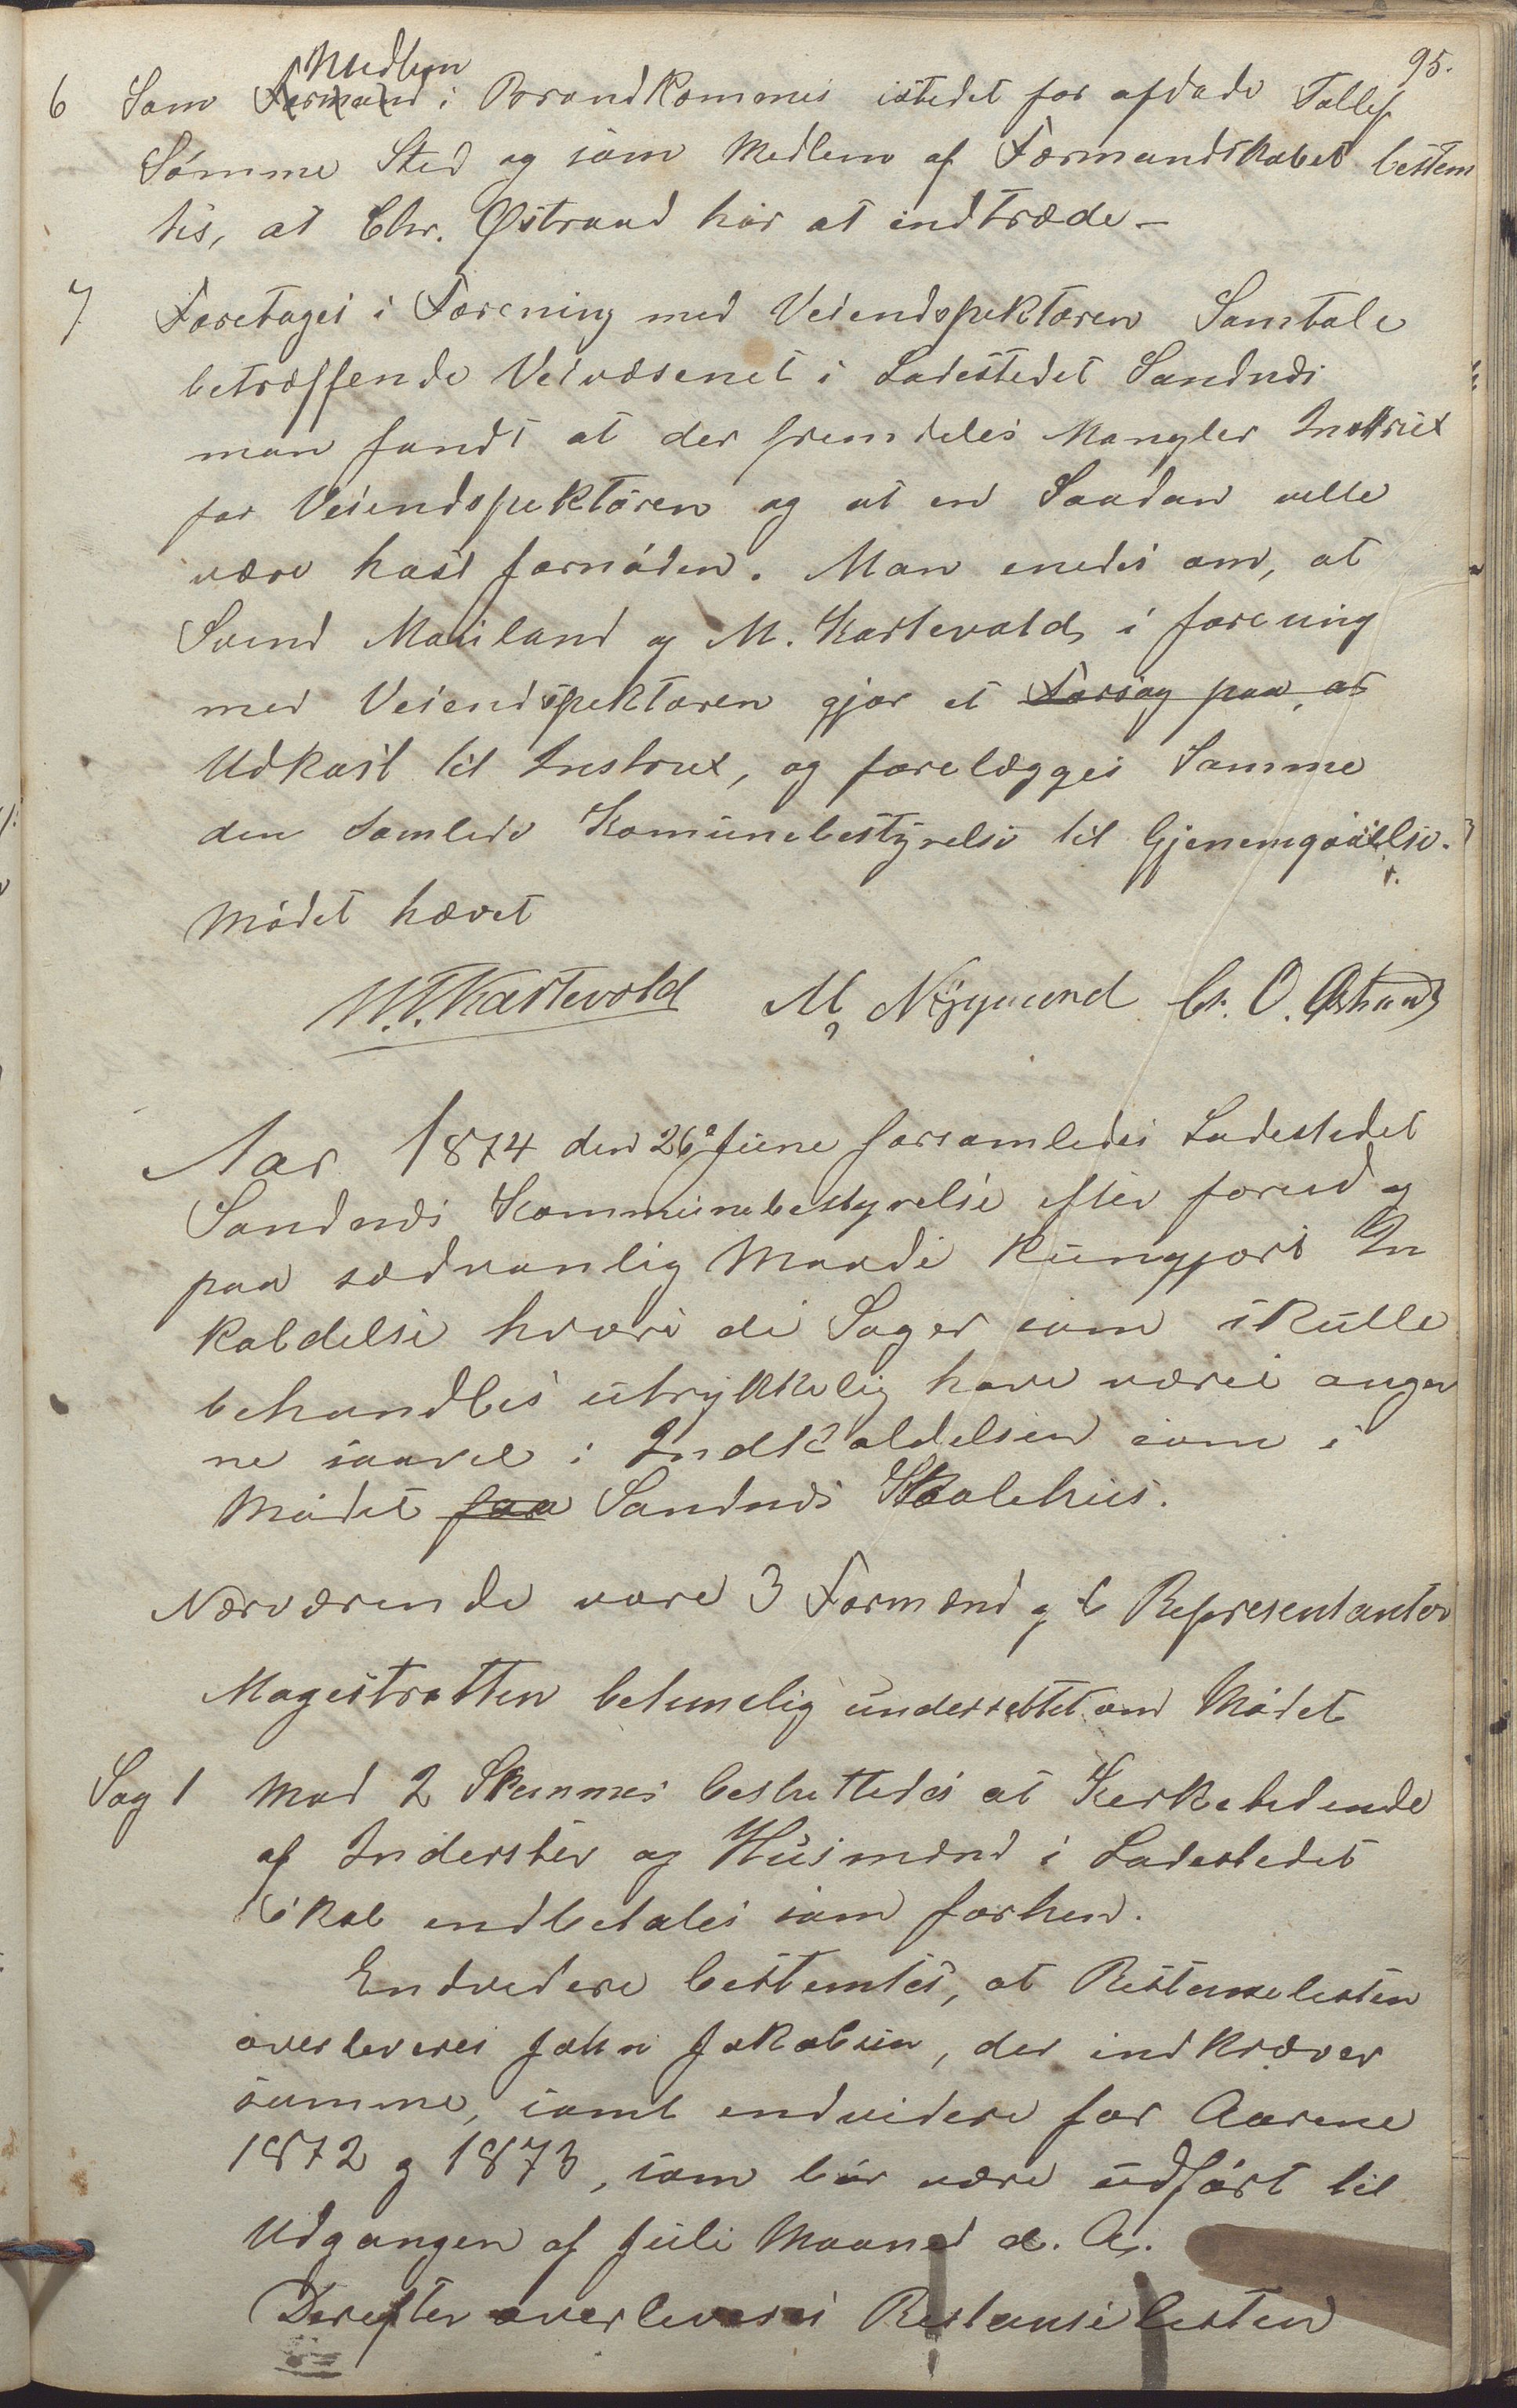 95.
Medlem
6 Som Formand i Brandkommis istedet for afdøde Tollef
Sømme Sted og som Medlem af Formandskabet bestem
tes, at Chr. Østraad har at indtræde –
7 Foretoges i Forening med Veiendspektøren Samtale
betræffende Veivæsenet i Ladestedet Sandnæs
man fandt at der fremdeles Mangler Instrux
for Veiendspektøren og at en Saadan ville
være høist fornøden. Man enedes om, at
Svend Mauland og M. Kartevold, i forening
med Veiendspektøren gjør et Forsøg paa, at
Udkast til Instrux, og forelægges Samme
den Samlede Komunebestyrelse til Gjenemgaaelse.
Mødet hævet
M. T. Kartevold M Nygaard Cr. O. Østraad
Aar 1874 den 26de June forsamledes Ladestedet
Sandnæs Kommunebestyrelse efter forud og
paa sædvanlig Maade kungjort In
kaldelse hvori de Sager som skulle
behandles utrykkelig have været angiv
ne saavel i Indkaldelsen som i
Mødet paa Sandnæs Skolehus.
Nærværende vare 3 Formænd og 6 Representanter
Magistratten behøvelig underrettet om Mødet
Sag 1 Mod 2 Stemmer besluttedes at Kirketiende
af Inderster og Husmænd i Ladestedet
skal indbetales som forhen.
Endvidere bestemtes, at Restanselisten
overleveres John Jakobsen, der indkræver
samme, samt endvidere for Aarene
1872 og 1873, som bør være udført til
Udgangen af Juli Maaned d. A.
Derefter overleveres Restanselisten